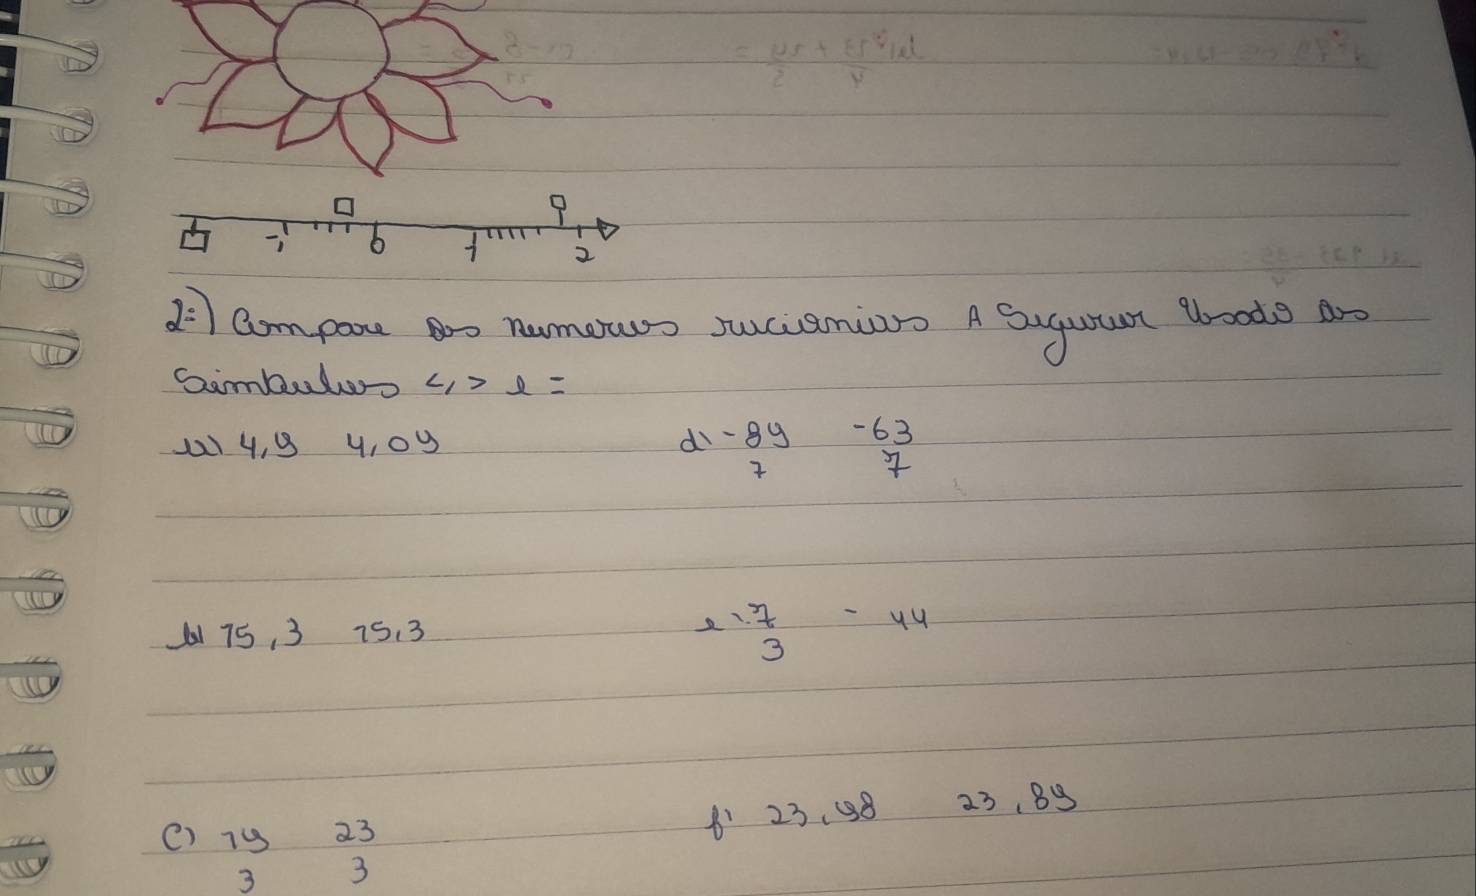 -1 0 1 2
2=) Compare os numeros rucionios A Segurir Usado os
Simbulos <,> e =
a) 4,9 4,09
d) -89/7 -63/7
b) 15,3 15,3
e) 7/3 - 44
c) 19/3 23/3
f) 23,98 23,89